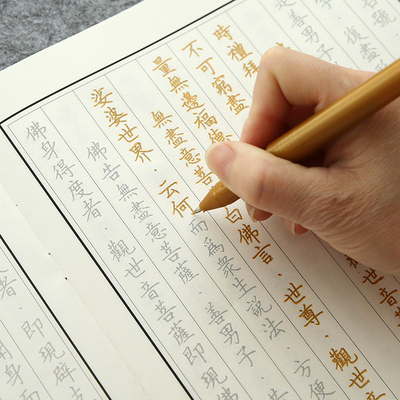 復盡
善男子
時禮拜
不可窮盡
量無邊福德
無盡意菩 白佛言・世尊・觀世音
娑婆世界・云何而為眾生說法・方便
佛告無盡意菩薩・善男子
佛身得度者・觀世音菩薩即現佛
者・即現辟支